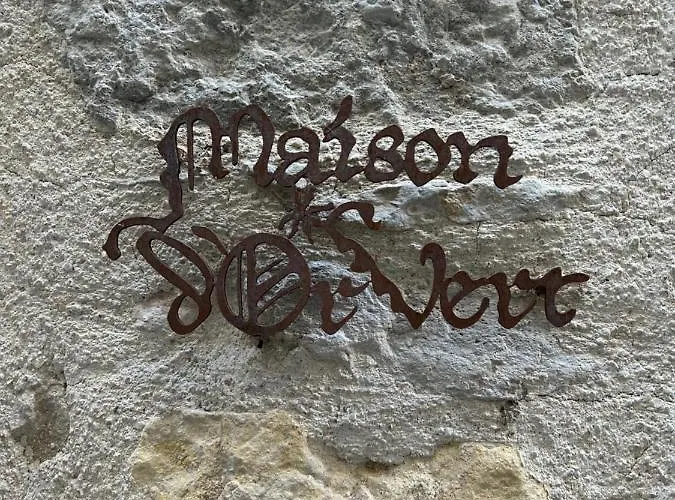 Maison
d'Or Vert